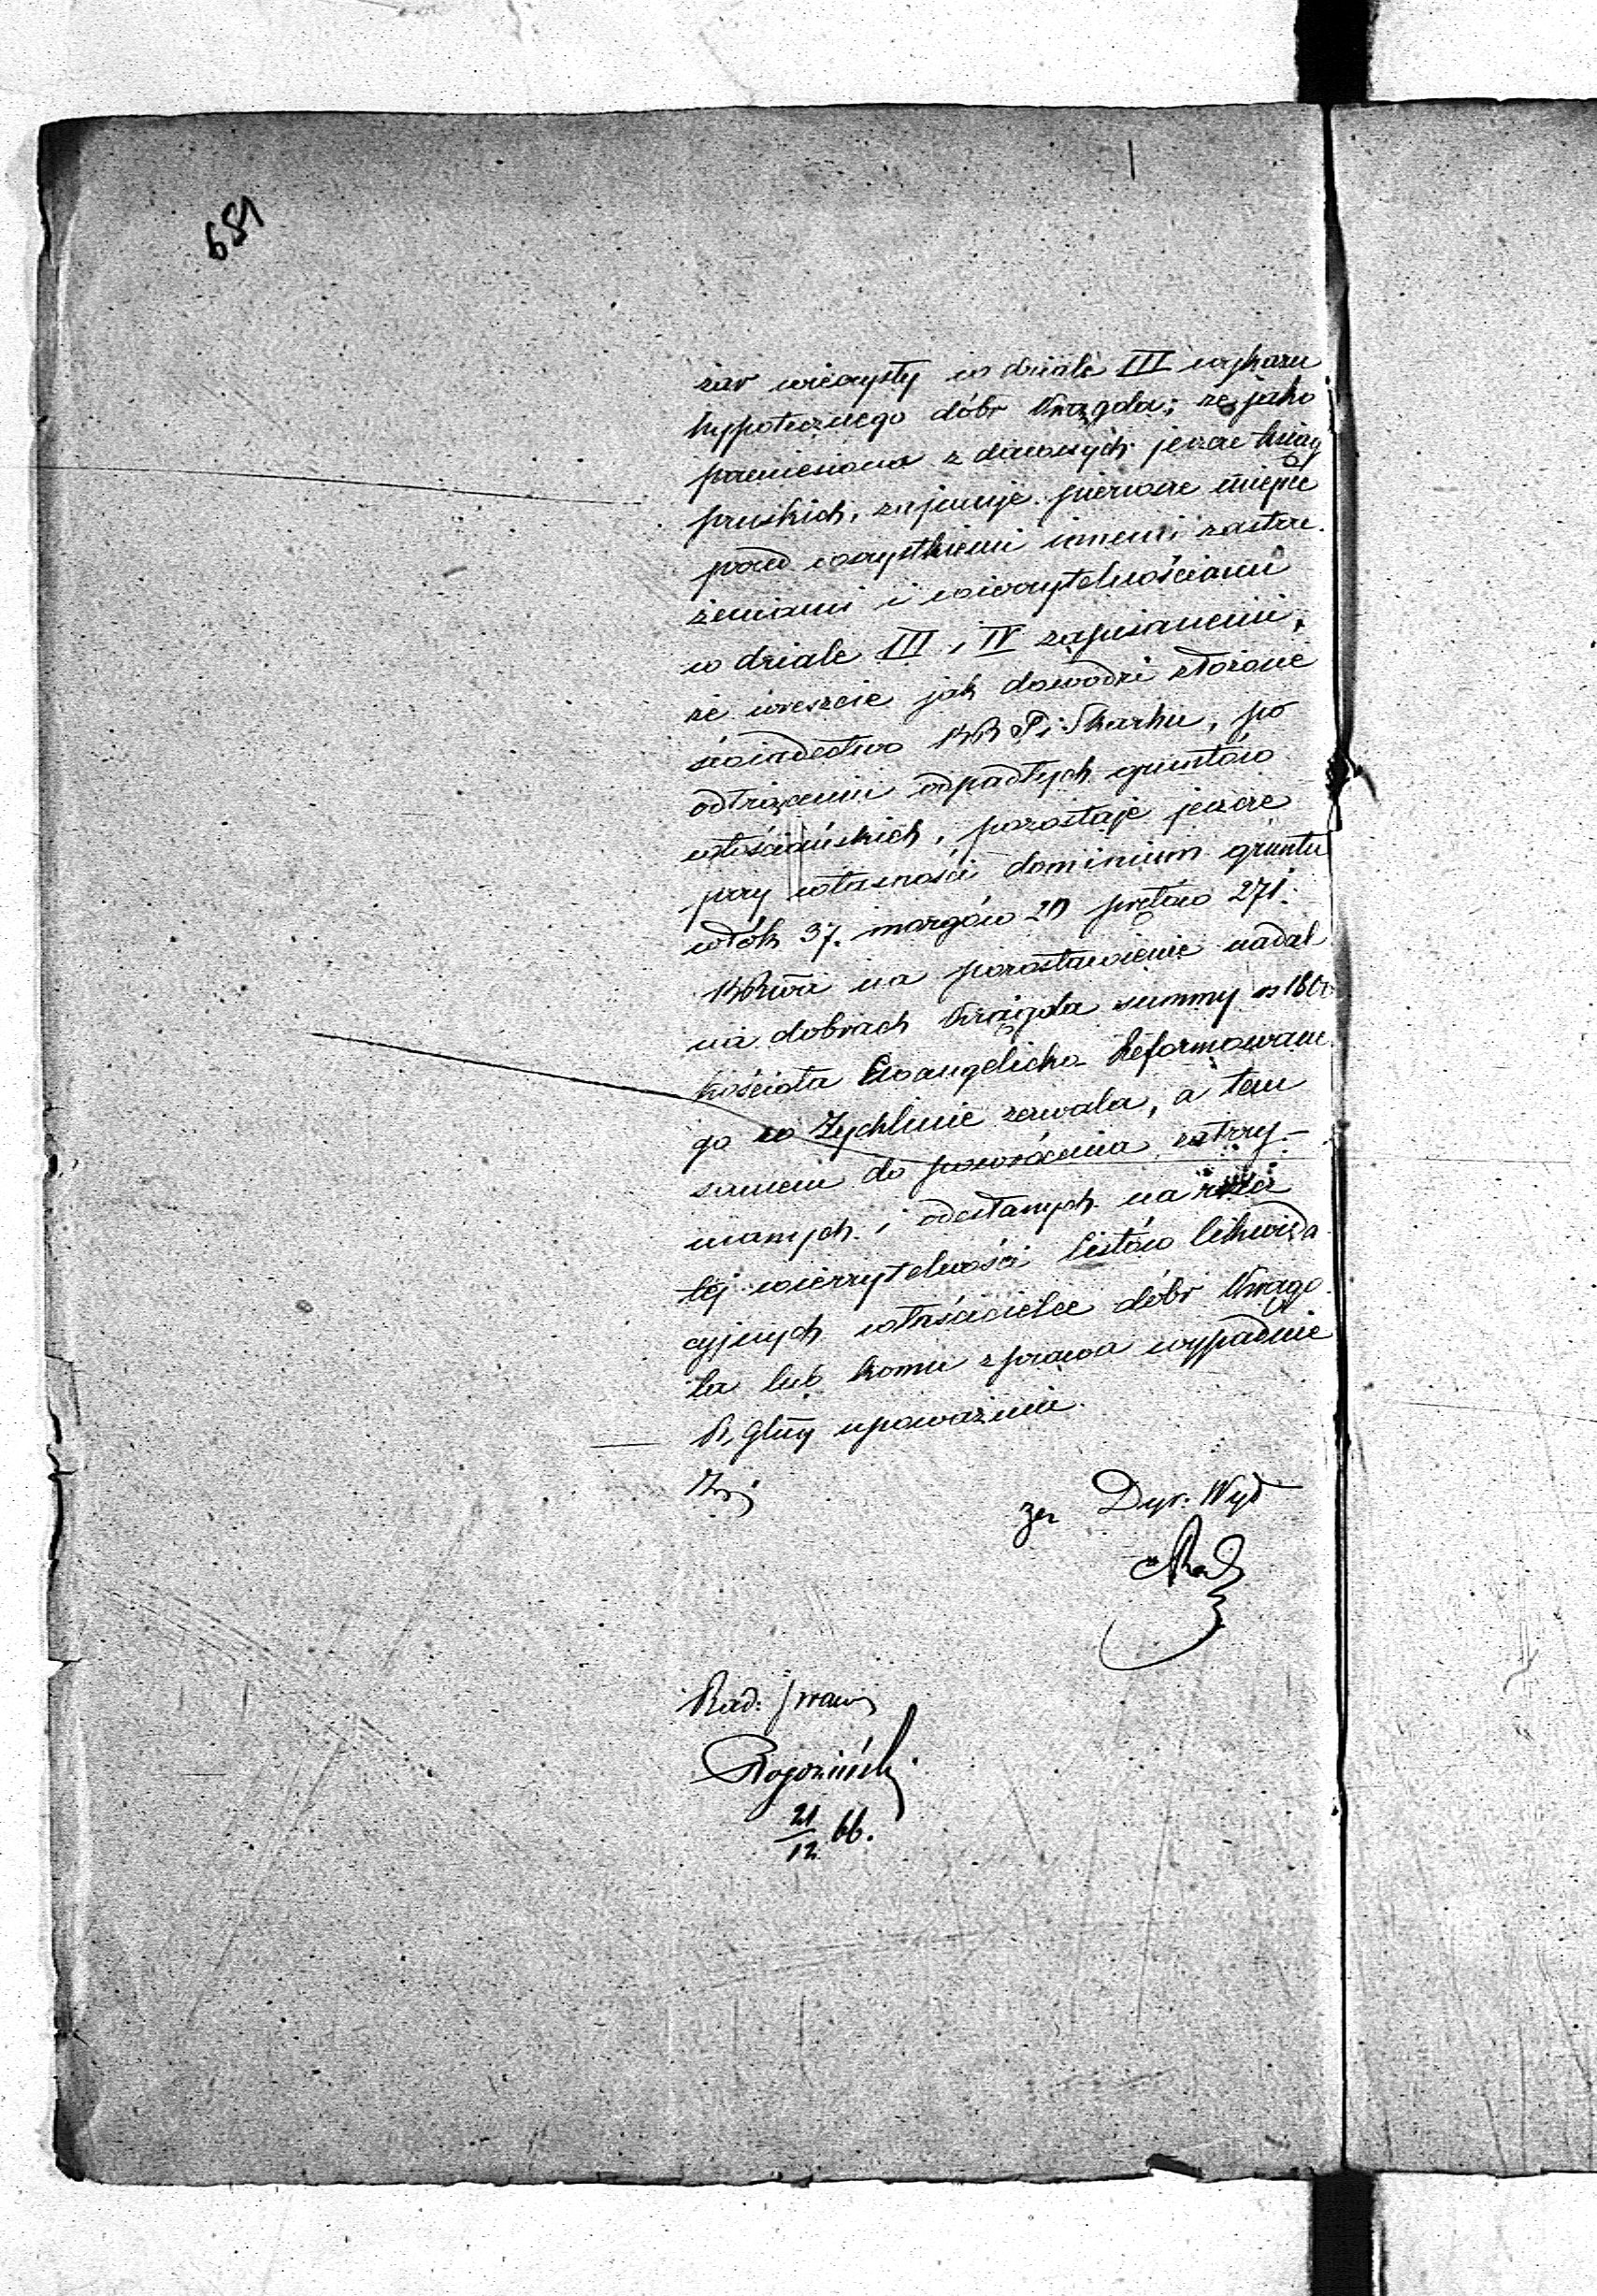 681
żar wieczysty w dziale III wykazu
hypotecznego dóbr Krągola; że jako
przeniesiona z dawnych jeszcze ksiąg
pruskich, zajmuje pierwsze miejsce
przed wszystkiemi innemi zastrze-
żeniami i wierzytelnościami
w dziale III i IV zapisanemi,
że wreszcie jak dowodzi złożone
świadectwo KR P i Skarbu, po
odtrąceniu odpadłych gruntów
włościańskich, pozostaje jeszcze
przy własności dominium gruntu
włók 37. morgów 20 prętów 271.
na pozostawienie nadal
na dobrach Krągola summy rs 180
kościoła Ewangelicko Reformowane
go w Żychlinie zezwala, a tem
samem do powrócenia zatrzy-
manych i odesłanych na rzecz
tej wierzytelności listów likwida
cyjnych właścicielce dóbr Krągo
la lub komu z prawa wypadnie
upoważnia.
za Dyr. Wyd
Rad. prawn
Rogoziński
21/12 66.